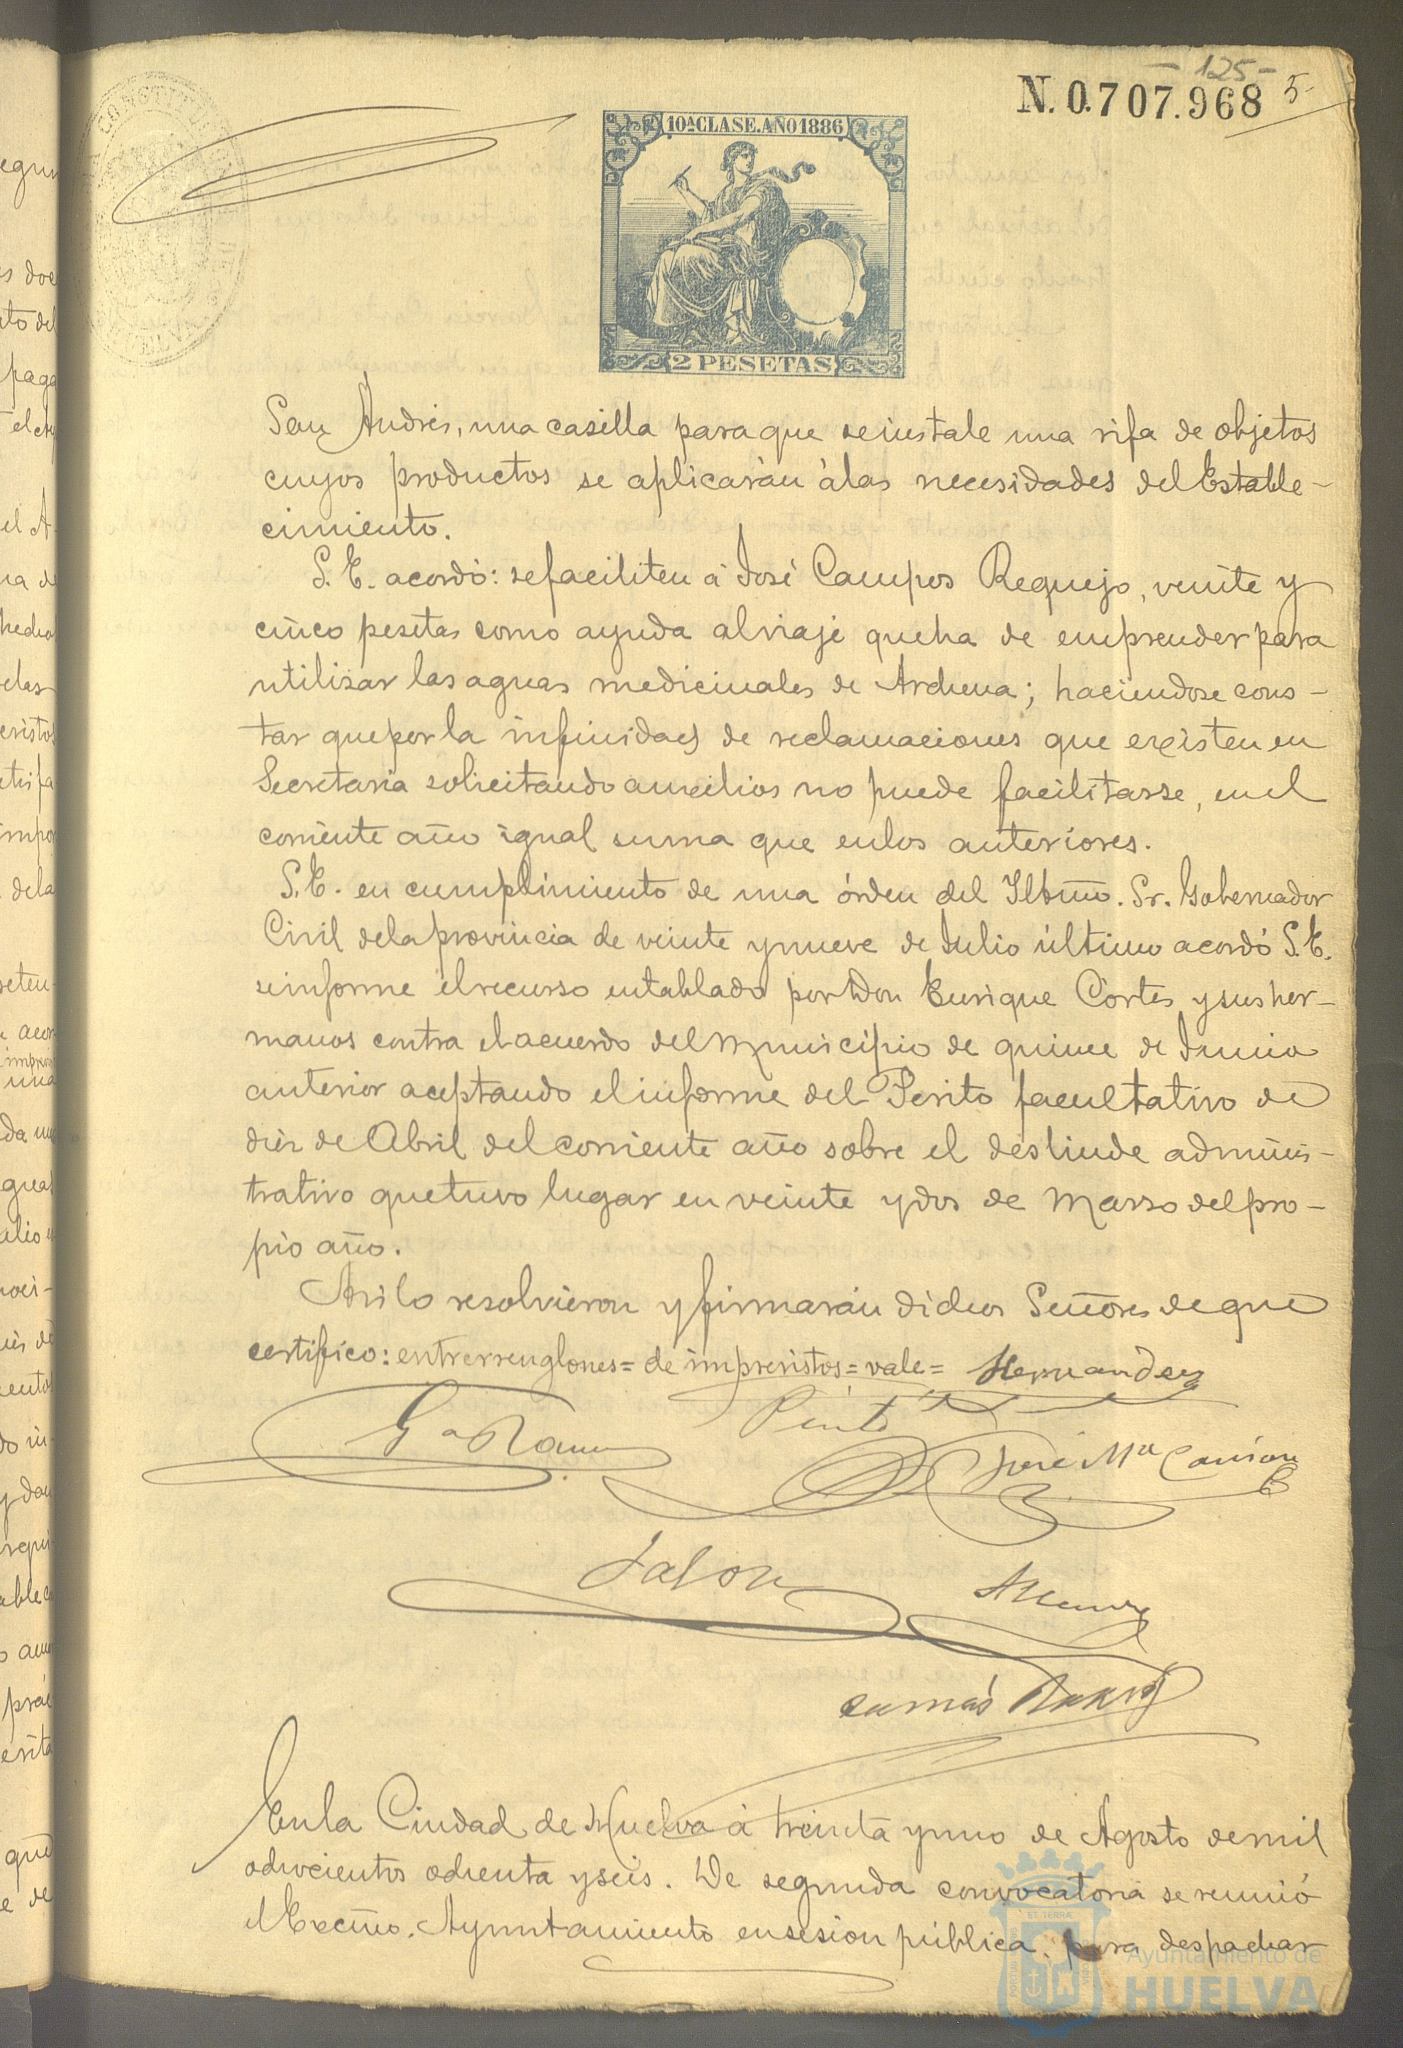 -125-
N. 0.707.968 5-
10ª CLASE. AÑO 1886
2 PESETAS
San Andrés, una casilla para que se instale una rifa de objetos
cuyos productos se aplicarán á las necesidades del Estable-
cimiento.
S. E. acordó: se faciliten á José Campos Requejo, veinte y
cinco pesetas como ayuda al viaje que ha de emprender para
utilisar las aguas medicinales de Archena; haciendose cons-
tar que por la infinidad de reclamaciones que existen en
Secretaria solicitando auxilios no puede facilitarse, en el
corriente año igual suma que en los anteriores.
S. E. en cumplimiento de una órden del Iltmo. Sr. Gobernador
Civil de la provincia de veinte y nueve de Julio último acordó S. E.
se informe el recurso entablado por Don Enrique Cortes y sus her-
manos contra el acuerdo del Municipio de quince de Junio
anterior aceptando el informe del Perito facultativo de
diez de Abril del corriente año sobre el deslinde adminis-
trativo que tuvo lugar en veinte y dos de Marzo del pro-
pio año.
Asi lo resolvieron y firmarán dichos Señores de que
certifico: entrerrenglones = de imprevistos = vale = Hernandez
Gª Ramos Pinto
José Mª Carrion
Jalon
En la Ciudad de Huelva á treinta y uno de Agosto de mil
ochocientos ochenta y seis. De segunda convocatoria se reunió
el Excmo. Ayuntamiento en sesion pública, para despachar
Ayuntamiento de
HUELVA